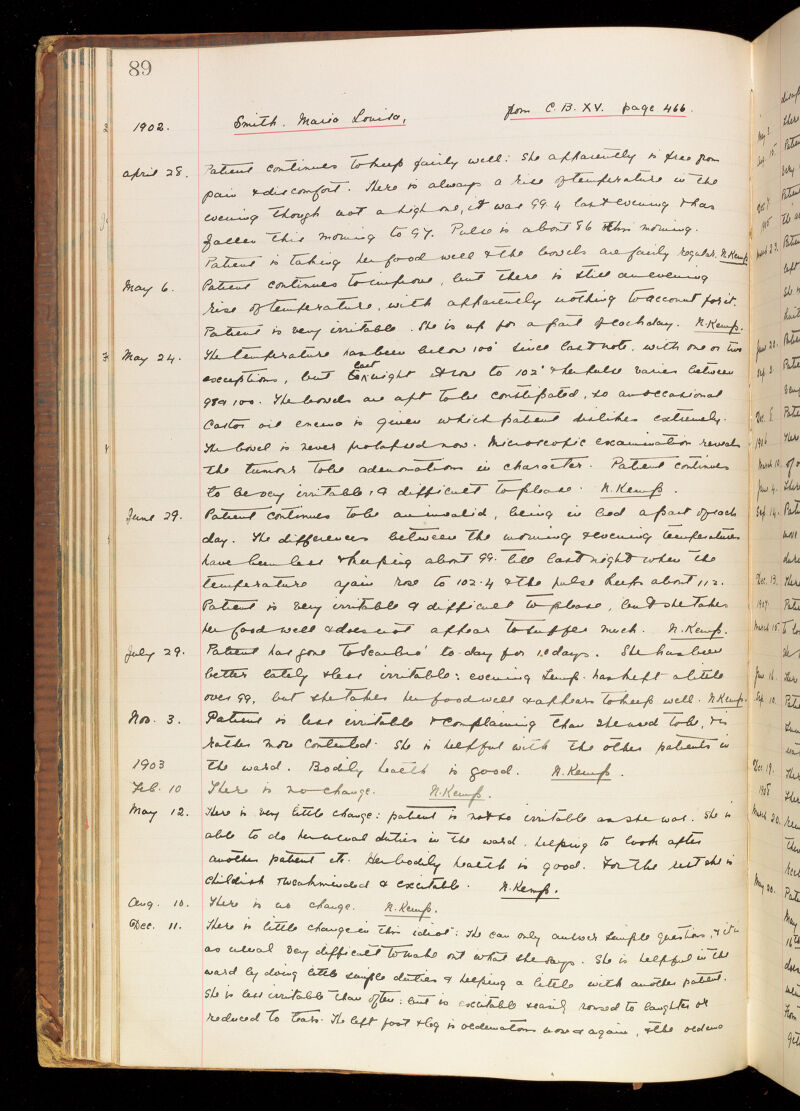 89
1902. Smith. Maria Louisa, from C.B. XV. page 466.
April 28. Patient continues to keep fairly well: She apparently is free from
pain & discomfort. There is always a rise of temperature in the
evening though not a high one, it was 99.4 last evening & has
fallen this morning to 97. Pulse is about 86 this morning.
Patient is taking her food well & the bowels are fairly regular. N.Kemp.
May 6. Patient continues to improve, but there is still an evening
rise of temperature, with apparently nothing to account for it.
Patient is very irritable. She is up for a part of each day. N.Kemp.
May 24. The temperature has been below 100° since last note, with one or two
exceptions, but last night it rose to 102° & the pulse varies between
98 & 100. The bowels are apt to be constipated, so an occasional
Castor oil enema is given which patient dislikes extremely.
The bowel is never prolapsed now. Microscopic examination reveals
the tumour to be adenomatous in character. Patient continues
to be very irritable, & difficult to please. N.Kemp.
June 29. Patient continues to be an invalid, being in bed a part of each
day. The differences between the morning & evening temperatures
have been less & keeping about 99. till last night when the
temperature again rose to 102.4 & the pulse keeps about 112.
Patient is very irritable & difficult to please, but she takes
her food well & does not appear to suffer much. N.Kemp.
July 29. Patient has gone to Scarbro' to-day for 10 days. She has been
better lately & less irritable: evening temp. has kept a little
over 99, but she takes her food well & appears to keep well. N.Kemp.
Nov. 3. Patient is less irritable & complaining than she used to be, & is
rather more contented. She is helpful with the other patients in
1903 the ward. Bodily health is good. N.Kemp.
Feb. 10 There is no change. N.Kemp.
May 12. There is very little change: patient is not so irritable as she was. She is
able to do her usual duties in the ward, helping to look after
another patient etc. Her bodily health is good. For the rest she is
childish & weakminded & excitable. N.Kemp.
Aug. 10. There is no change. N.Kemp.
Dec. 11. There is little change in this idiot: she can only answer simple questions, & it is
as usual very difficult to make out what she says. She is helpful in the
ward by doing little simple duties & helping a little with another patient.
She is less irritable than often: but is excitable & easily roused to laughter or
reduced to tears. The left foot & leg is oedematous now & again, & the oedema